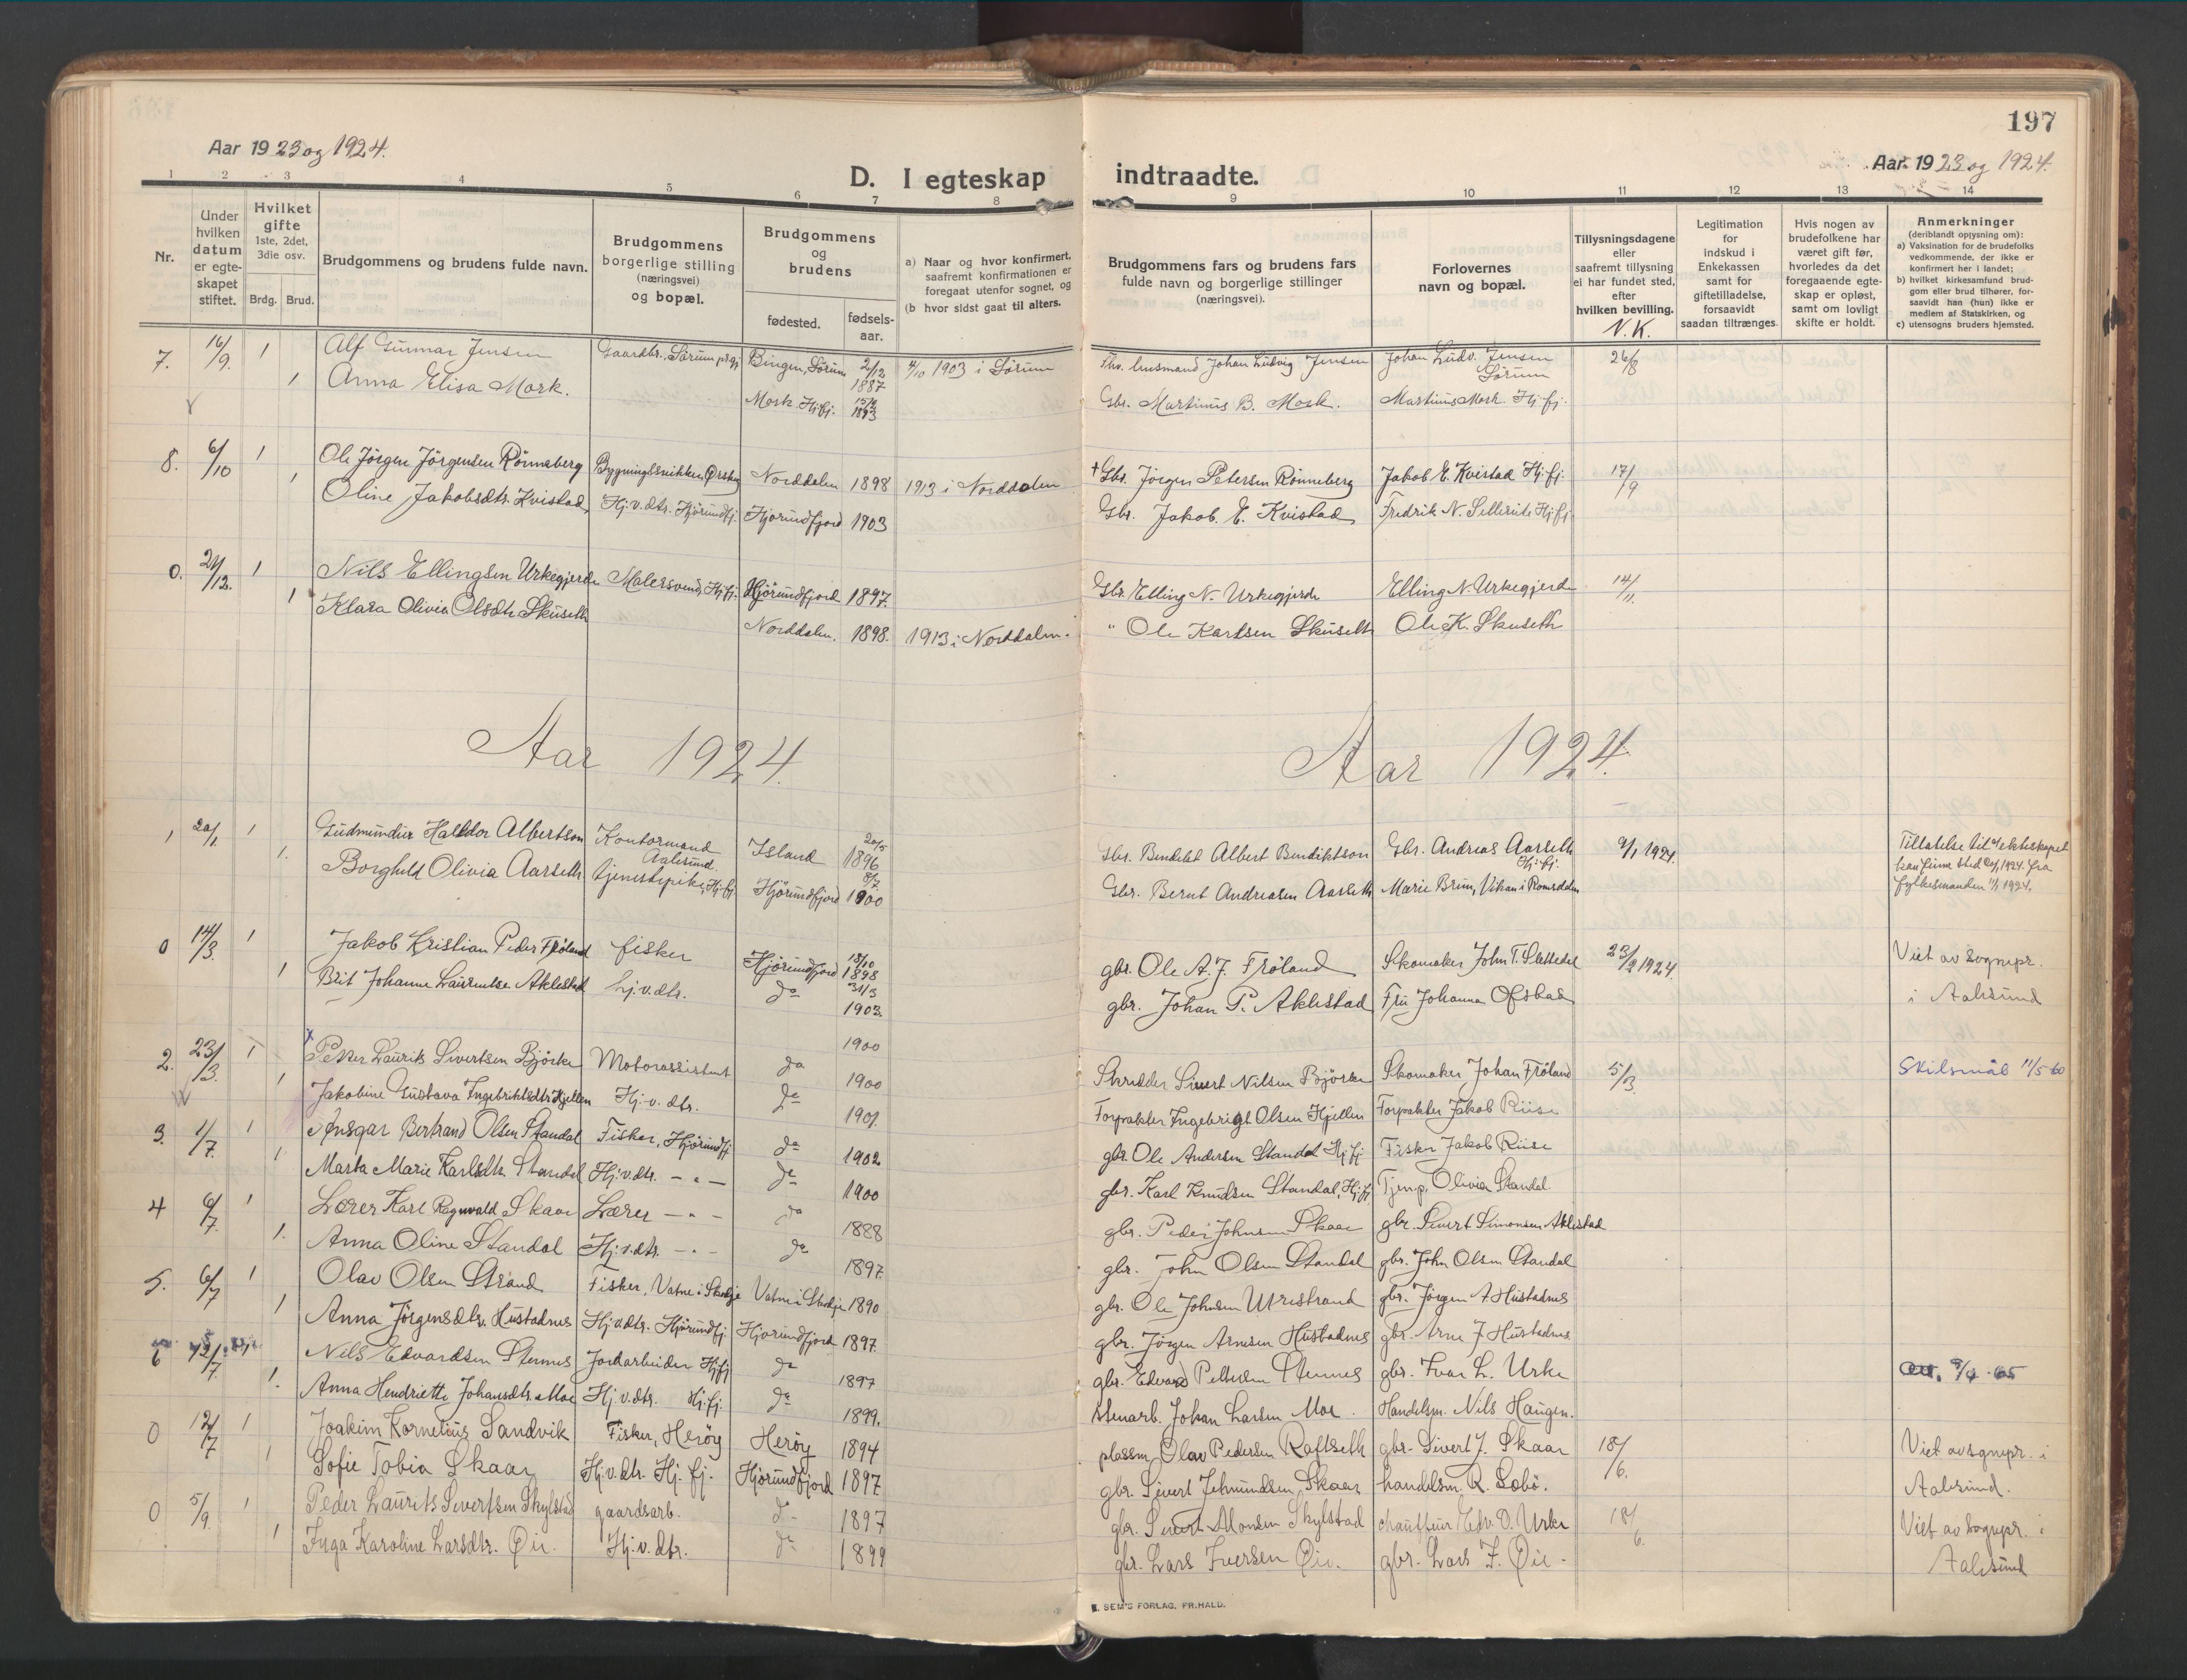 197
Aar 1923 og 1924.
Aar 1923 og 1924.
D. I egteskap indtraadte.
1 2 3 4 5 6 7 8 9 10 11 12 13 14
Nr.
Under hvilken datum er egteskapet stiftet.
Hvilket gifte 1ste, 2det, 3die osv.
Brdg. Brud.
Brudgommens og brudens fulde navn.
Brudgommens borgerlige stilling (næringsvei) og bopæl.
Brudgommens og brudens
fødested. fødselsaar.
a) Naar og hvor konfirmert, saafremt konfirmationen er foregaat utenfor sognet, og
(b hvor sidst gaat til alters.
Brudgommens fars og brudens fars fulde navn og borgerlige stillinger (næringsvei).
Forlovernes navn og bopæl.
Tillysningsdagene eller saafremt tillysning ei har fundet sted, efter hvilken bevilling.
N.K.
Legitimation for indskud i Enkekassen samt for giftetilladelse, forsaavidt saadan tiltrænges.
Hvis nogen av brudefolkene har været gift før, hvorledes da det foregaaende egteskap er opløst, samt om lovligt skifte er holdt.
Anmerkninger
(deriblandt opiysning om):
a) Vaksination for de brudefolks vedkommende, der ikke er konfirmert her i landet;
b) hvilket kirkesamfund brudgom eller brud tilhører, forsaavidt han (hun) ikke er medlem af Statskirken, og
c) utensogns bruders hjemsted.
7. 16/9. 1 Alf Gunnar Jensen Gaardbr. Sørum Bingen, Sørum 2/12 1887 4/10 1903 i Sørum husmand Johan Ludvig Jensen Johan Ludv. Jensen Sørum 26/8
1 Anna Elisa Mork. Mork. Hj.fj. 1893 Gbr. Martinus B. Mork. Martinus Mork. Hj.fj.
8. 6/10 1 Ole Jörgen Jörgensen Rönneberg Bygningssnikker, Ørskog Norddalen 1898 1913 i Norddalen † Gbr. Jörgen Petersen Rönneberg Jakob E. Kvistad Hj.fj. 17/9
1 Oline Jakobsdtr. Kvistad Hj.v.dtr. Hjörundfj. Hjörundfjord 1903 Gbr. Jakob E. Kvistad Fredrik N. Hj.fj.
0. 24/12. 1 Nils Ellingsen Urkegjerde Malersvend, Hj.fj. Hjörundfjord 1897. Gbr. Elling N. Urkegjerde Elling N. Urkegjerde 14/11.
1 Klara Olivia Olsdtr. Skuseth Norddalen. 1898. 1913 i Norddalen. " Ole Karlsen Skuseth Ole K. Skuseth
Aar 1924.
Aar 1924.
1 20/1. 1 Gudmundur Halldor Albertson Kontormand Aalesund. Island 20/5 1896 Gbr. Bendikt Albert Bendiktson Gbr. Andreas Aarseth Hj.fj. 9/1 1924. Tillatelse til ekteskapet
1. Borghild Olivia Aarseth tjenestepike, Hj.fj. Hjörundfjord 8/7 1900 Gbr. Bernt Andreasen Aarseth Marie Brun, Vikan i Romsdalen kan finne sted 1924. fra fylkesmanden 1924.
0 14/3. 1 Jakob Kristian Peder Frøland fisker Hjörundfjord 13/10 1898 gbr. Ole A.J. Frøland Skomaker John T. Slettedal 23/2 1924. Viet av sognepr.
1 Brit Johanne Laurentse Aklestad hj.v.dtr. do 31/3 1903. gbr. Johan P. Aklestad Fru Johanna Ofstad i Aalesund
2. 23/3. 1 x Petter Laurits Sivertsen Bjørke Motorassistent do 1900 Skredder Sivert Nilsen Bjørke Skomaker Johan Frøland 5/3. Skilsmål 11/5 60
1 Jakobine Gustava Ingebriktsdtr. Hjellen Hj.v.dtr. do 1900 Forpakter Ingebrigt Olsen Hjellen Forpakter Jakob Riise
3. 1/7. 1 Ansgar Bertrand Olsen Standal Fisker, Hjörundfj. do 1901. gbr. Ole Andersen Standal Hj.fj. Fisker Jakob Riise
1 Marta Marie Karlsdtr. Standal Hj.v.dtr. — " — do 1902 gbr. Karl Knudsen Standal, Hj.fj. Tjenp. Olivia Standal
4 6/7. 1 Lærer Karl Ragnvald Skaar Lærer — " — do 1900 gbr. Peder Johnsen Skaar gbr. Sivert Simonsen Aklestad
1. Anna Oline Standal Hj.v.dtr. — " — do 1888 gbr. John Olsen Standal gbr. John Olsen Standal
5. 6/7 1 Olav Olsen Strand Fisker, Vatne i Skodje Vatne i Skodje 1897. 1890 gbr. Ole Johnsen Utrestrand gbr. Jørgen A. Hustadnes
1 Anna Jörgensdtr. Hustadnes Hj.v.dtr. Hjörundfj. Hjorundfjord 1897. gbr. Jørgen Arnesen Hustadnes gbr. Arne J. Hustadnes
6 12/7. 1 Nils Edvardsen Stennes Jordarbeider Hj.fj. do 1897 gbr. Edvard Stennes gbr. Ivar L. Urke 65
1. Anna Hendriette Johansdtr. Moe Hj.v.dtr. Hj.fj. do 1899. Stenarb. Johan Larsen Moe. Handelsm. Nils Haugen.
0 12/7 1 Joakim Kornelius Sandvik Fisker, Herøy Herøy 1894 plassm. Olav Pedersen Raftseth gbr. Sivert J. Skaar 18/6. Viet av sognepr. i
1 Sofie Tobia Skaar Hj.v.dtr. Hj.fj. Hjörundfjord 1897 gbr. Sivert Jetmundsen Skaar handelsm. R. Sæbö. Aalesund.
0 5/9. 1 Peder Laurits Sivertsen Skylstad gaardsarb. do 1897 gbr. Sivert Monsen Skylstad chauffeur Edv. O. Urke 18/6. Viet av sognepr. i
1 Inga Karoline Larsdtr. Øie. Hj.v.dtr. do 1899 gbr. Lars Iversen Øie. gbr. Lars I. Øie. Aalesund
E. SEM'S FORLAG, FR.HALD.